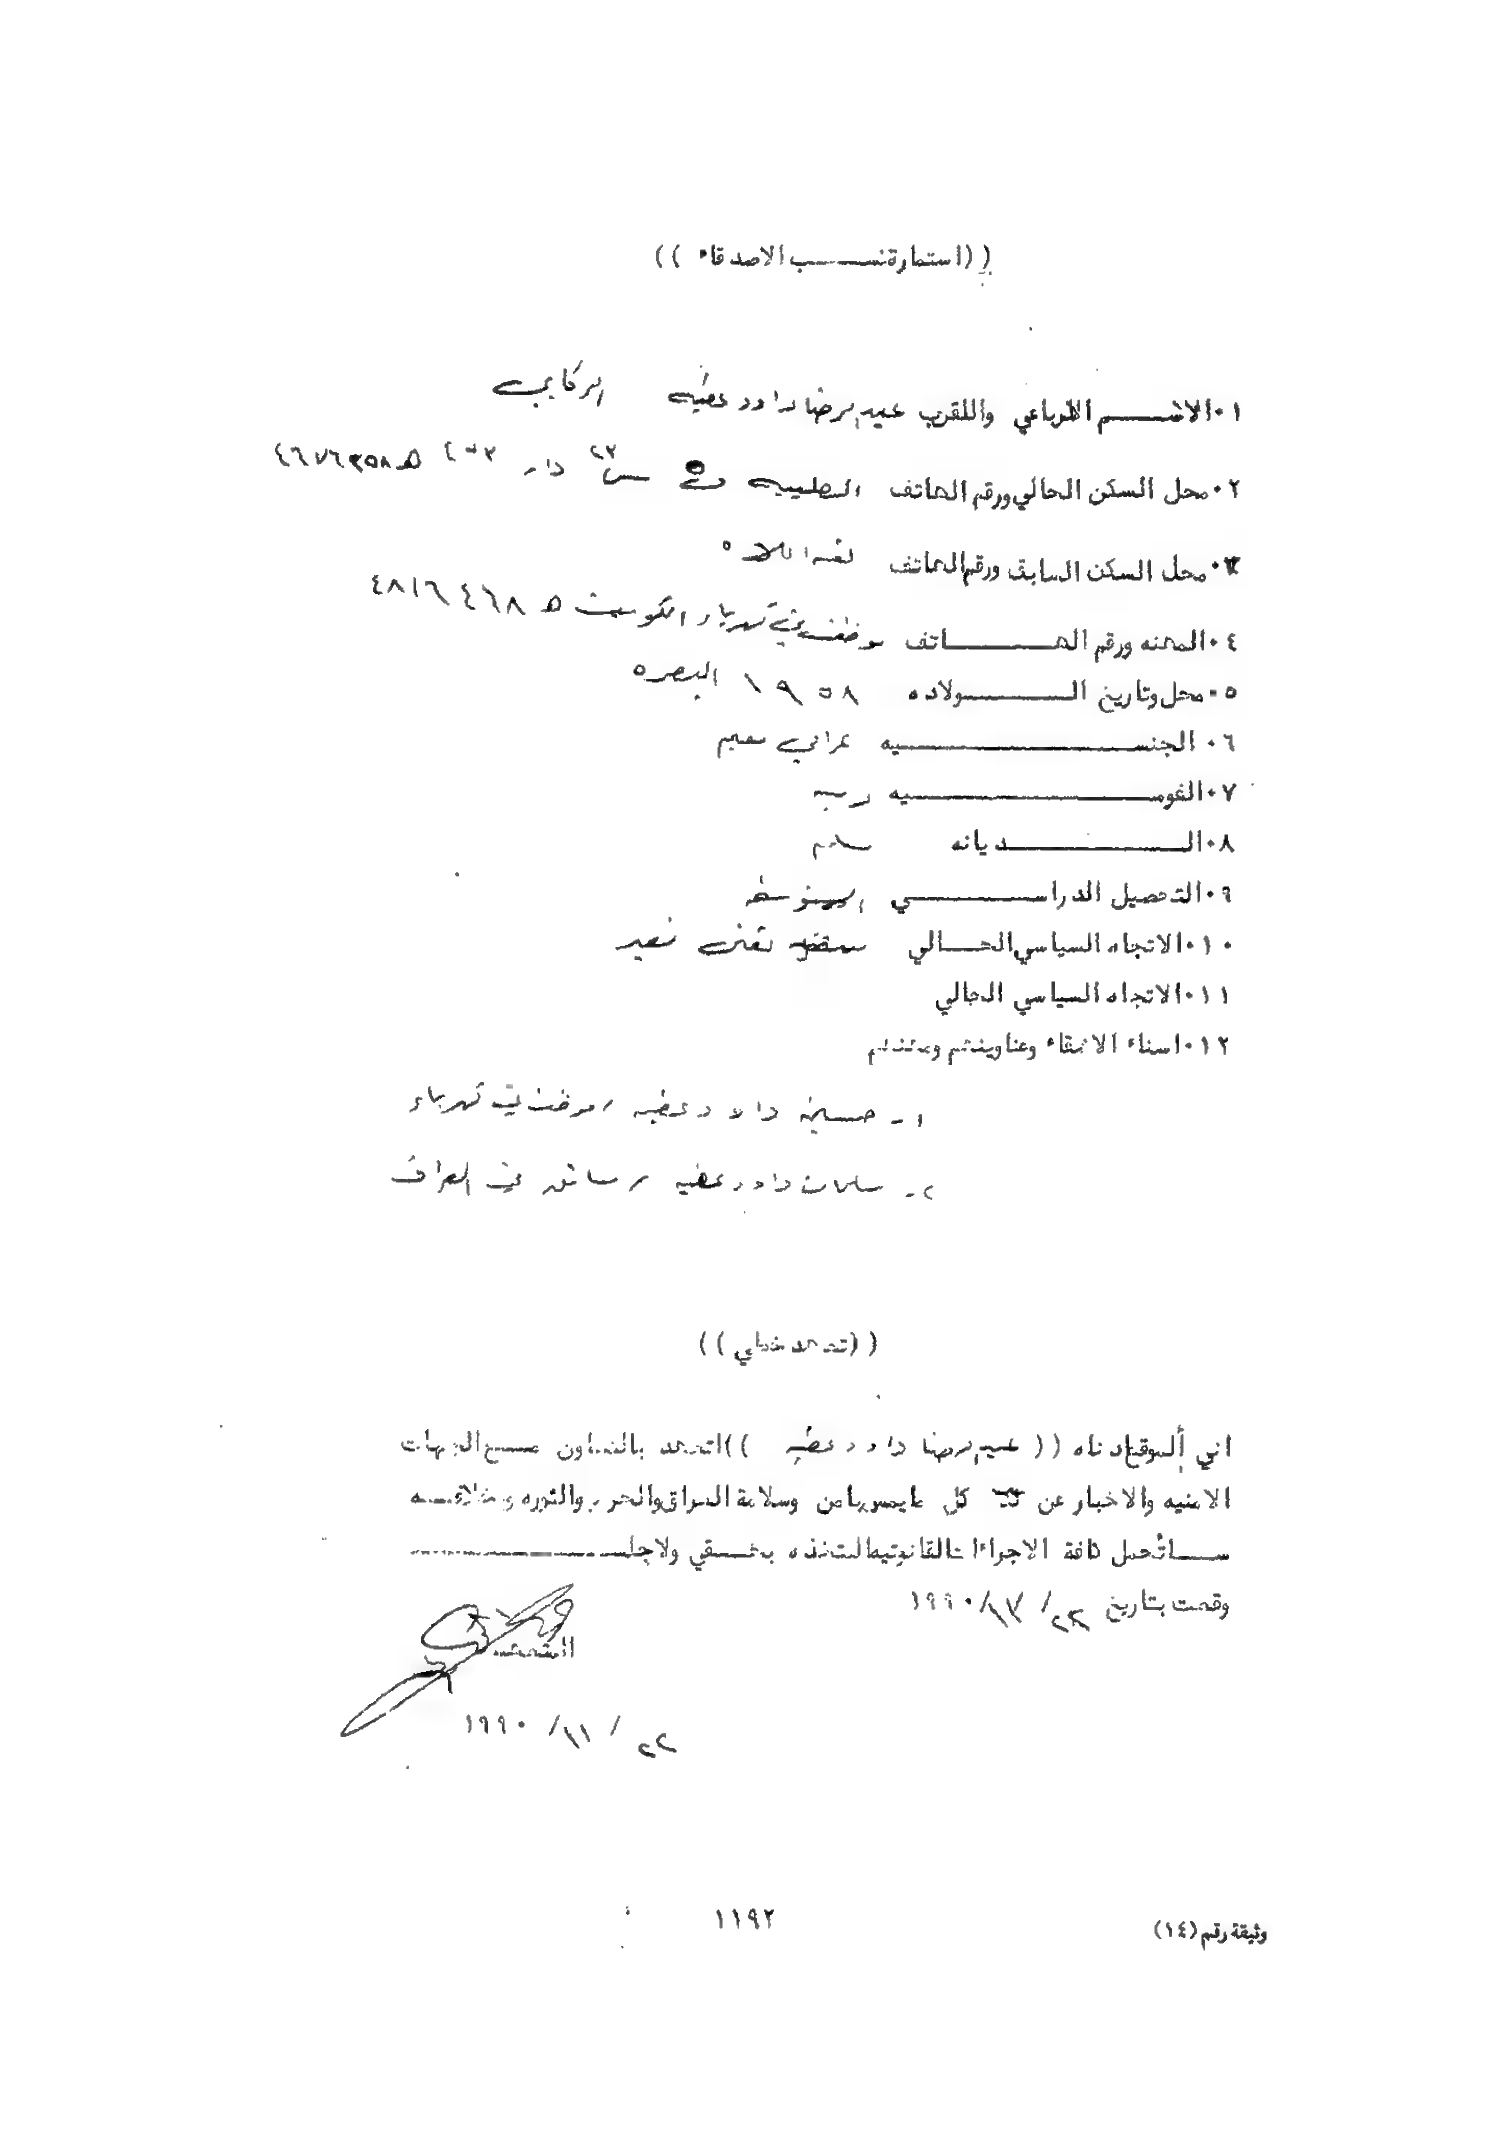 ((استمارة نسب الاصدقاء))
١٠الاسم الرباعي واللقب عبد الرضا داود عطيه الركابي
٢٠محل السكن الحالي ورقم الهاتف الصليبيه ق ٥ ش ٢٣ دار ٤٠٣ هـ ٤٦٧٦٣٥٨
٣٠محل السكن السابق ورقم الهاتف نفس اعلاه
٤٠المهنه ورقم الهاتف موظف في كهرباء الكويت هـ ٤٨١٦٤٦٨
٥٠محل وتاريخ الولاده ١٩٥٨ البصره
٦٠الجنسيه عراقي مقيم
٧٠القوميه
٨٠الديانه مسلم
٩٠التحصيل الدراسي المتوسطه
١٠٠الاتجاه السياسي الحالي مستقل
١١٠الاتجاه السياسي الحالي
١٢٠اسماء الاشقاء وعناوينهم ومهنهم
١- حسين داود عطيه / موظف في كهرباء
٢- سلمان داود عطيه / سائق في العراق
((تعهد خطي))
اني الموقع ادناه ((عبد الرضا داود عطيه)) اتعهد بالتعاون مع الجهات
الامنيه والاخبار عن كل مايمس امن وسلامة العراق والحزب والثوره وخلافه
سأتحمل كافة الاجراءات القانونيه المتخذه بحقي ولاجله
وقعت بتاريخ ٢٢/١١/١٩٩٠
المتعهد
٢٢/١١/١٩٩٠
١١٩٢
وثيقة رقم (١٤)